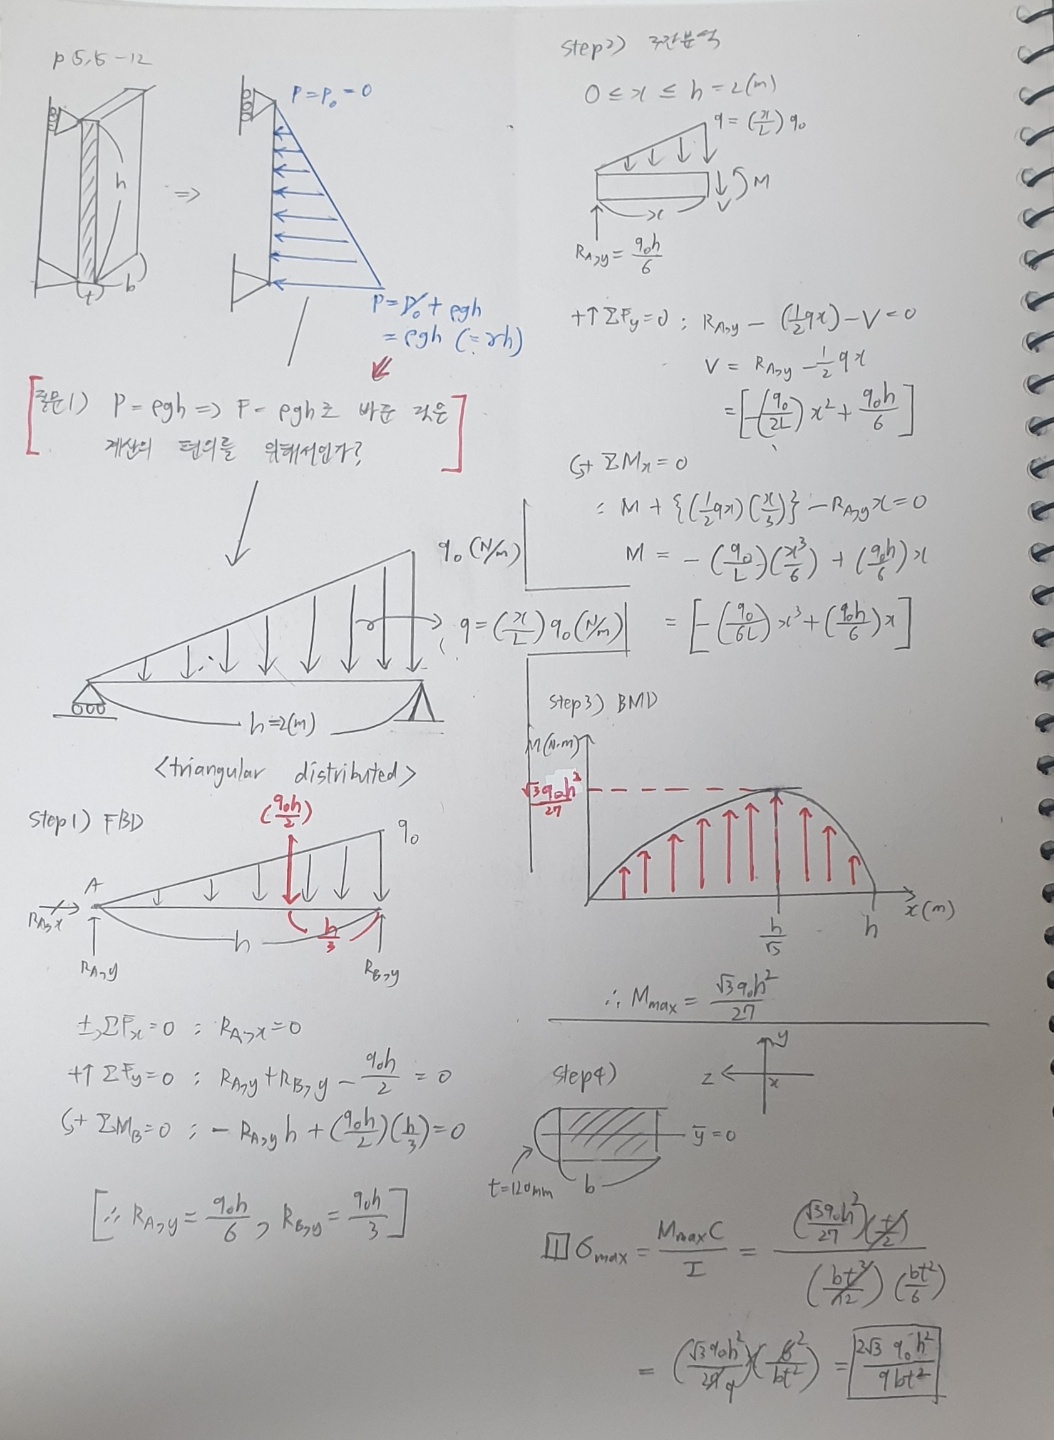 p 5.5-12
h
t
b
⇒
P=P₀=0
P=P₀+ρgh
=ρgh (=γh)
질문1) P=ρgh => F=ρgh로 바꾼 것은
계산의 편의를 위해서인가?
q₀(N/m)
q=(x/L)q₀(N/m)
h=2(m)
<triangular distributed>
Step1) FBD
(q₀h/2)
q₀
A
R_A,x
h
h/3
R_A,y
R_B,y
±→ΣFx=0 ; R_A,x=0
+↑ΣFy=0 ; R_A,y+R_B,y-q₀h/2=0
↺+ ΣM_B=0 ; -R_A,y h+(q₀h/2)(h/3)=0
[∴ R_A,y=q₀h/6, R_B,y=q₀h/3]
Step2) 구간분석
0≤x≤h=2(m)
q=(x/L)q₀
M
V
x
R_A,y=q₀h/6
+↑ΣFy=0 ; R_A,y-(½qx)-V=0
V=R_A,y-½qx
=[-(q₀/2L)x²+q₀h/6]
↺+ ΣMx=0
; M+{(½qx)(x/3)}-R_A,y x=0
M=-(q₀/L)(x³/6)+(q₀h/6)x
=[-(q₀/6L)x³+(q₀h/6)x]
Step3) BMD
M(N·m)
√3q₀h²/27
x(m)
h/√3
h
∴ Mmax=√3q₀h²/27
Step4)
y
z
x
ȳ=0
t=120mm
b
1 σmax=MmaxC/I=(√3q₀h²/27)(t/2)/(bt³/12)(bt²/6)
=(√3q₀h²/27 9)(6 2/bt²)=2√3 q₀h²/9bt²